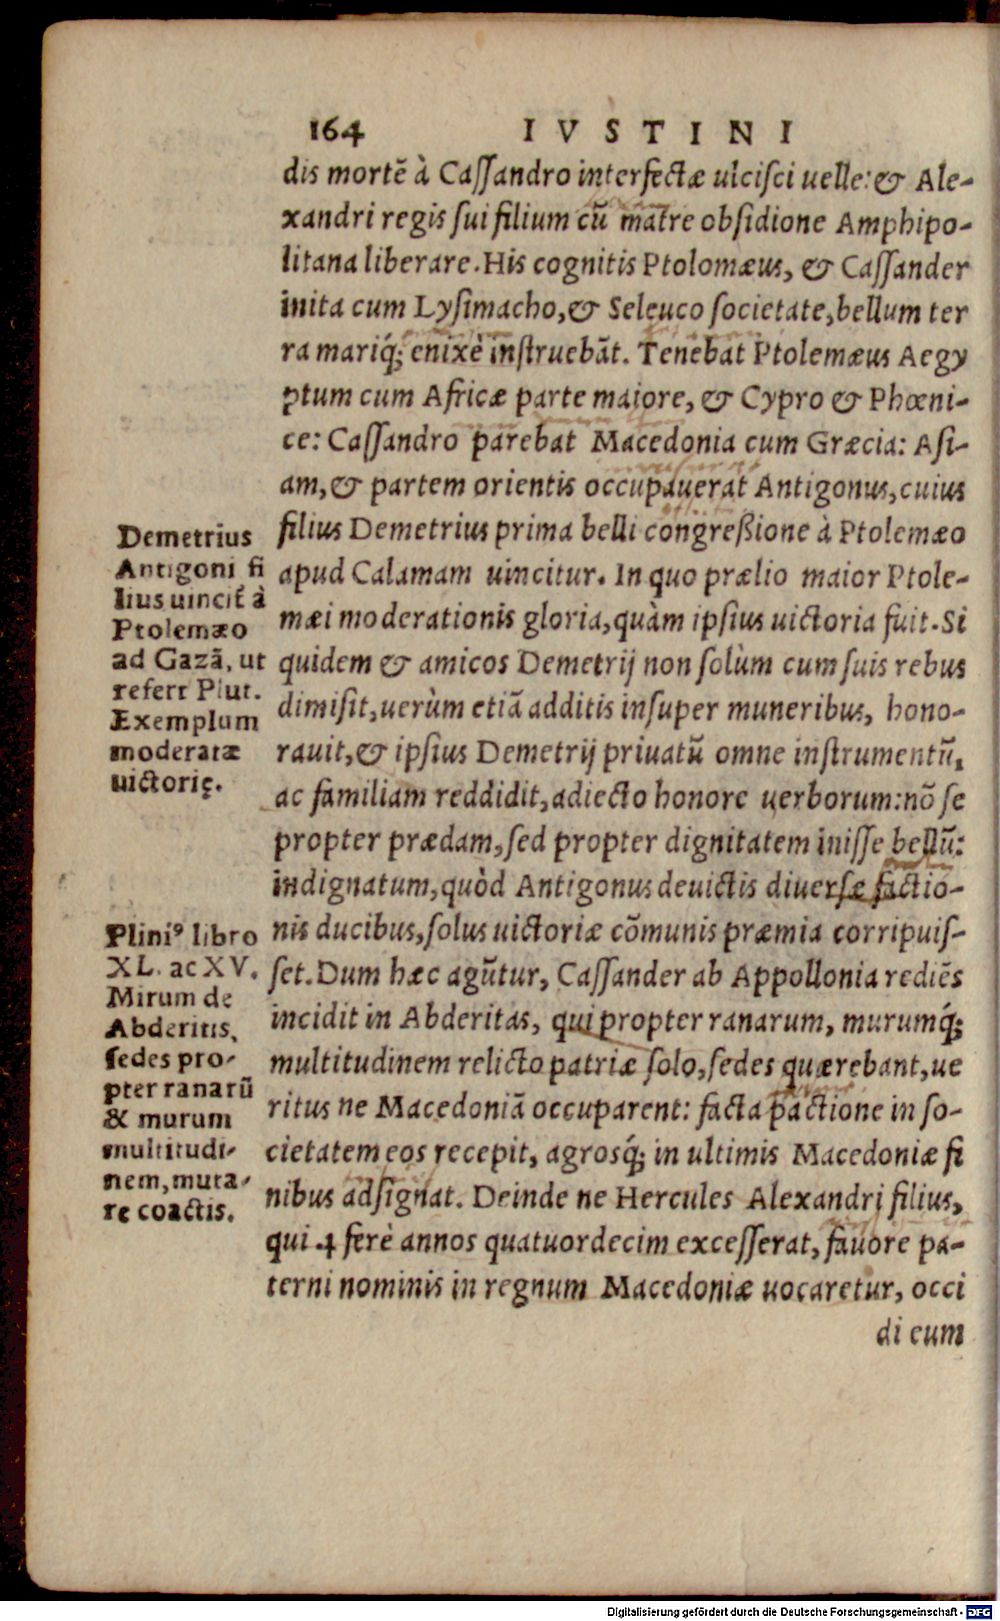 164 IVSTINI
dis mortē à Caſſandro interfectæ ulciſci uelle: & Ale-
xandri regis ſui filium cū matre obſidione Amphipo-
litana liberare. His cognitis Ptolomæus, & Caſſander
inita cum Lyſimacho, & Seleuco ſocietate, bellum ter
ra mariq́; enixè inſtruebāt. Tenebat Ptolemæus Aegy
ptum cum Africæ parte maiore, & Cypro & Phœni-
ce: Caſſandro parebat Macedonia cum Græcia: Aſi-
am, & partem orientis occupauerat Antigonus, cuius
filius Demetrius prima belli congreßione à Ptolemæo
apud Calamam uincitur. In quo prælio maior Ptole-
mæi moderationis gloria, quàm ipſius uictoria fuit. Si
quidem & amicos Demetrij non ſolùm cum ſuis rebus
dimiſit, uerùm etiā additis inſuper muneribus, hono-
rauit, & ipſius Demetrij priuatū omne inſtrumentū,
ac familiam reddidit, adiecto honore uerborum: nō ſe
propter prædam, ſed propter dignitatem iniſſe bellū:
indignatum, quòd Antigonus deuictis diuerſæ factio-
nis ducibus, ſolus uictoriæ cōmunis præmia corripuiſ-
ſet. Dum hæc agūtur, Caſſander ab Appollonia rediēs
incidit in Abderitas, qui propter ranarum, murumq́;
multitudinem relicto patriæ ſolo, ſedes quærebant, ue
ritus ne Macedoniā occuparent: facta pactione in ſo-
cietatem eos recepit, agrosq́; in ultimis Macedoniæ fi
nibus adſignat. Deinde ne Hercules Alexandri filius,
qui ferè annos quatuordecim exceſſerat, fauore pa-
terni nominis in regnum Macedoniæ uocaretur, occi
di cum
Demetrius
Antigoni fi
lius uincit̄ à
Ptolemæo
ad Gazā, ut
refert Plut.
Exemplum
moderatæ
uictorię.
Pliniꝰ libro
XL. ac XV.
Mirum de
Abderitis,
ſedes pro-
pter ranarū
& murum
multitudi-
nem, muta-
re coactis.
Digitalisierung gefördert durch die Deutsche Forschungsgemeinschaft - DFG